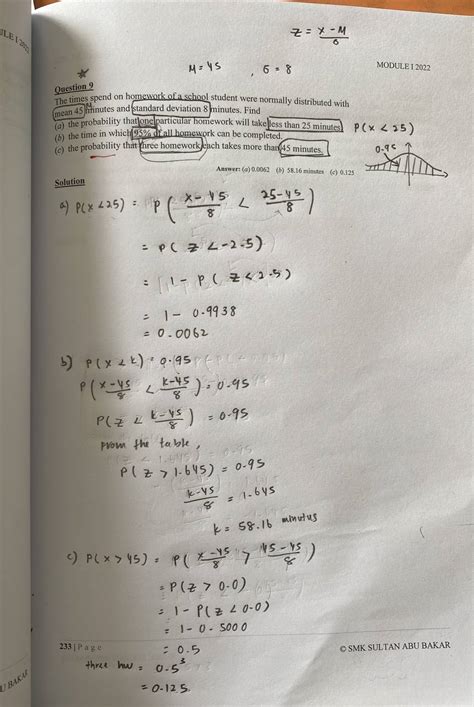 z = x - M / 6
M = 45 , σ = 8
MODULE I 2022
Question 9
The times spend on homework of a school student were normally distributed with
mean 45 minutes and standard deviation 8 minutes. Find
(a) the probability that one particular homework will take less than 25 minutes. P(x < 25)
(b) the time in which 95% of all homework can be completed. 0.95
(c) the probability that three homework each takes more than 45 minutes.
Answer: (a) 0.0062 (b) 58.16 minutes (c) 0.125
Solution
a) P(x < 25) = P( x - 45 / 8 < 25 - 45 / 8 )
= P( z < -2.5)
= 1 - P( z < 2.5)
= 1 - 0.9938
= 0.0062
b) P(x < k) = 0.95
P( x - 45 / 8 < k - 45 / 8 ) = 0.95
P(z < k - 45 / 8 ) = 0.95
From the table,
P( z > 1.645) = 0.95
k - 45 / 8 = 1.645
k = 58.16 minutus
c) P(x > 45) = P( x - 45 / 8 > 45 - 45 / 8 )
= P(z > 0.0)
= 1 - P(z < 0.0)
= 1 - 0.5000
= 0.5
233 | Page
© SMK SULTAN ABU BAKAR
three hw = 0.5³
= 0.125
U BAKAR